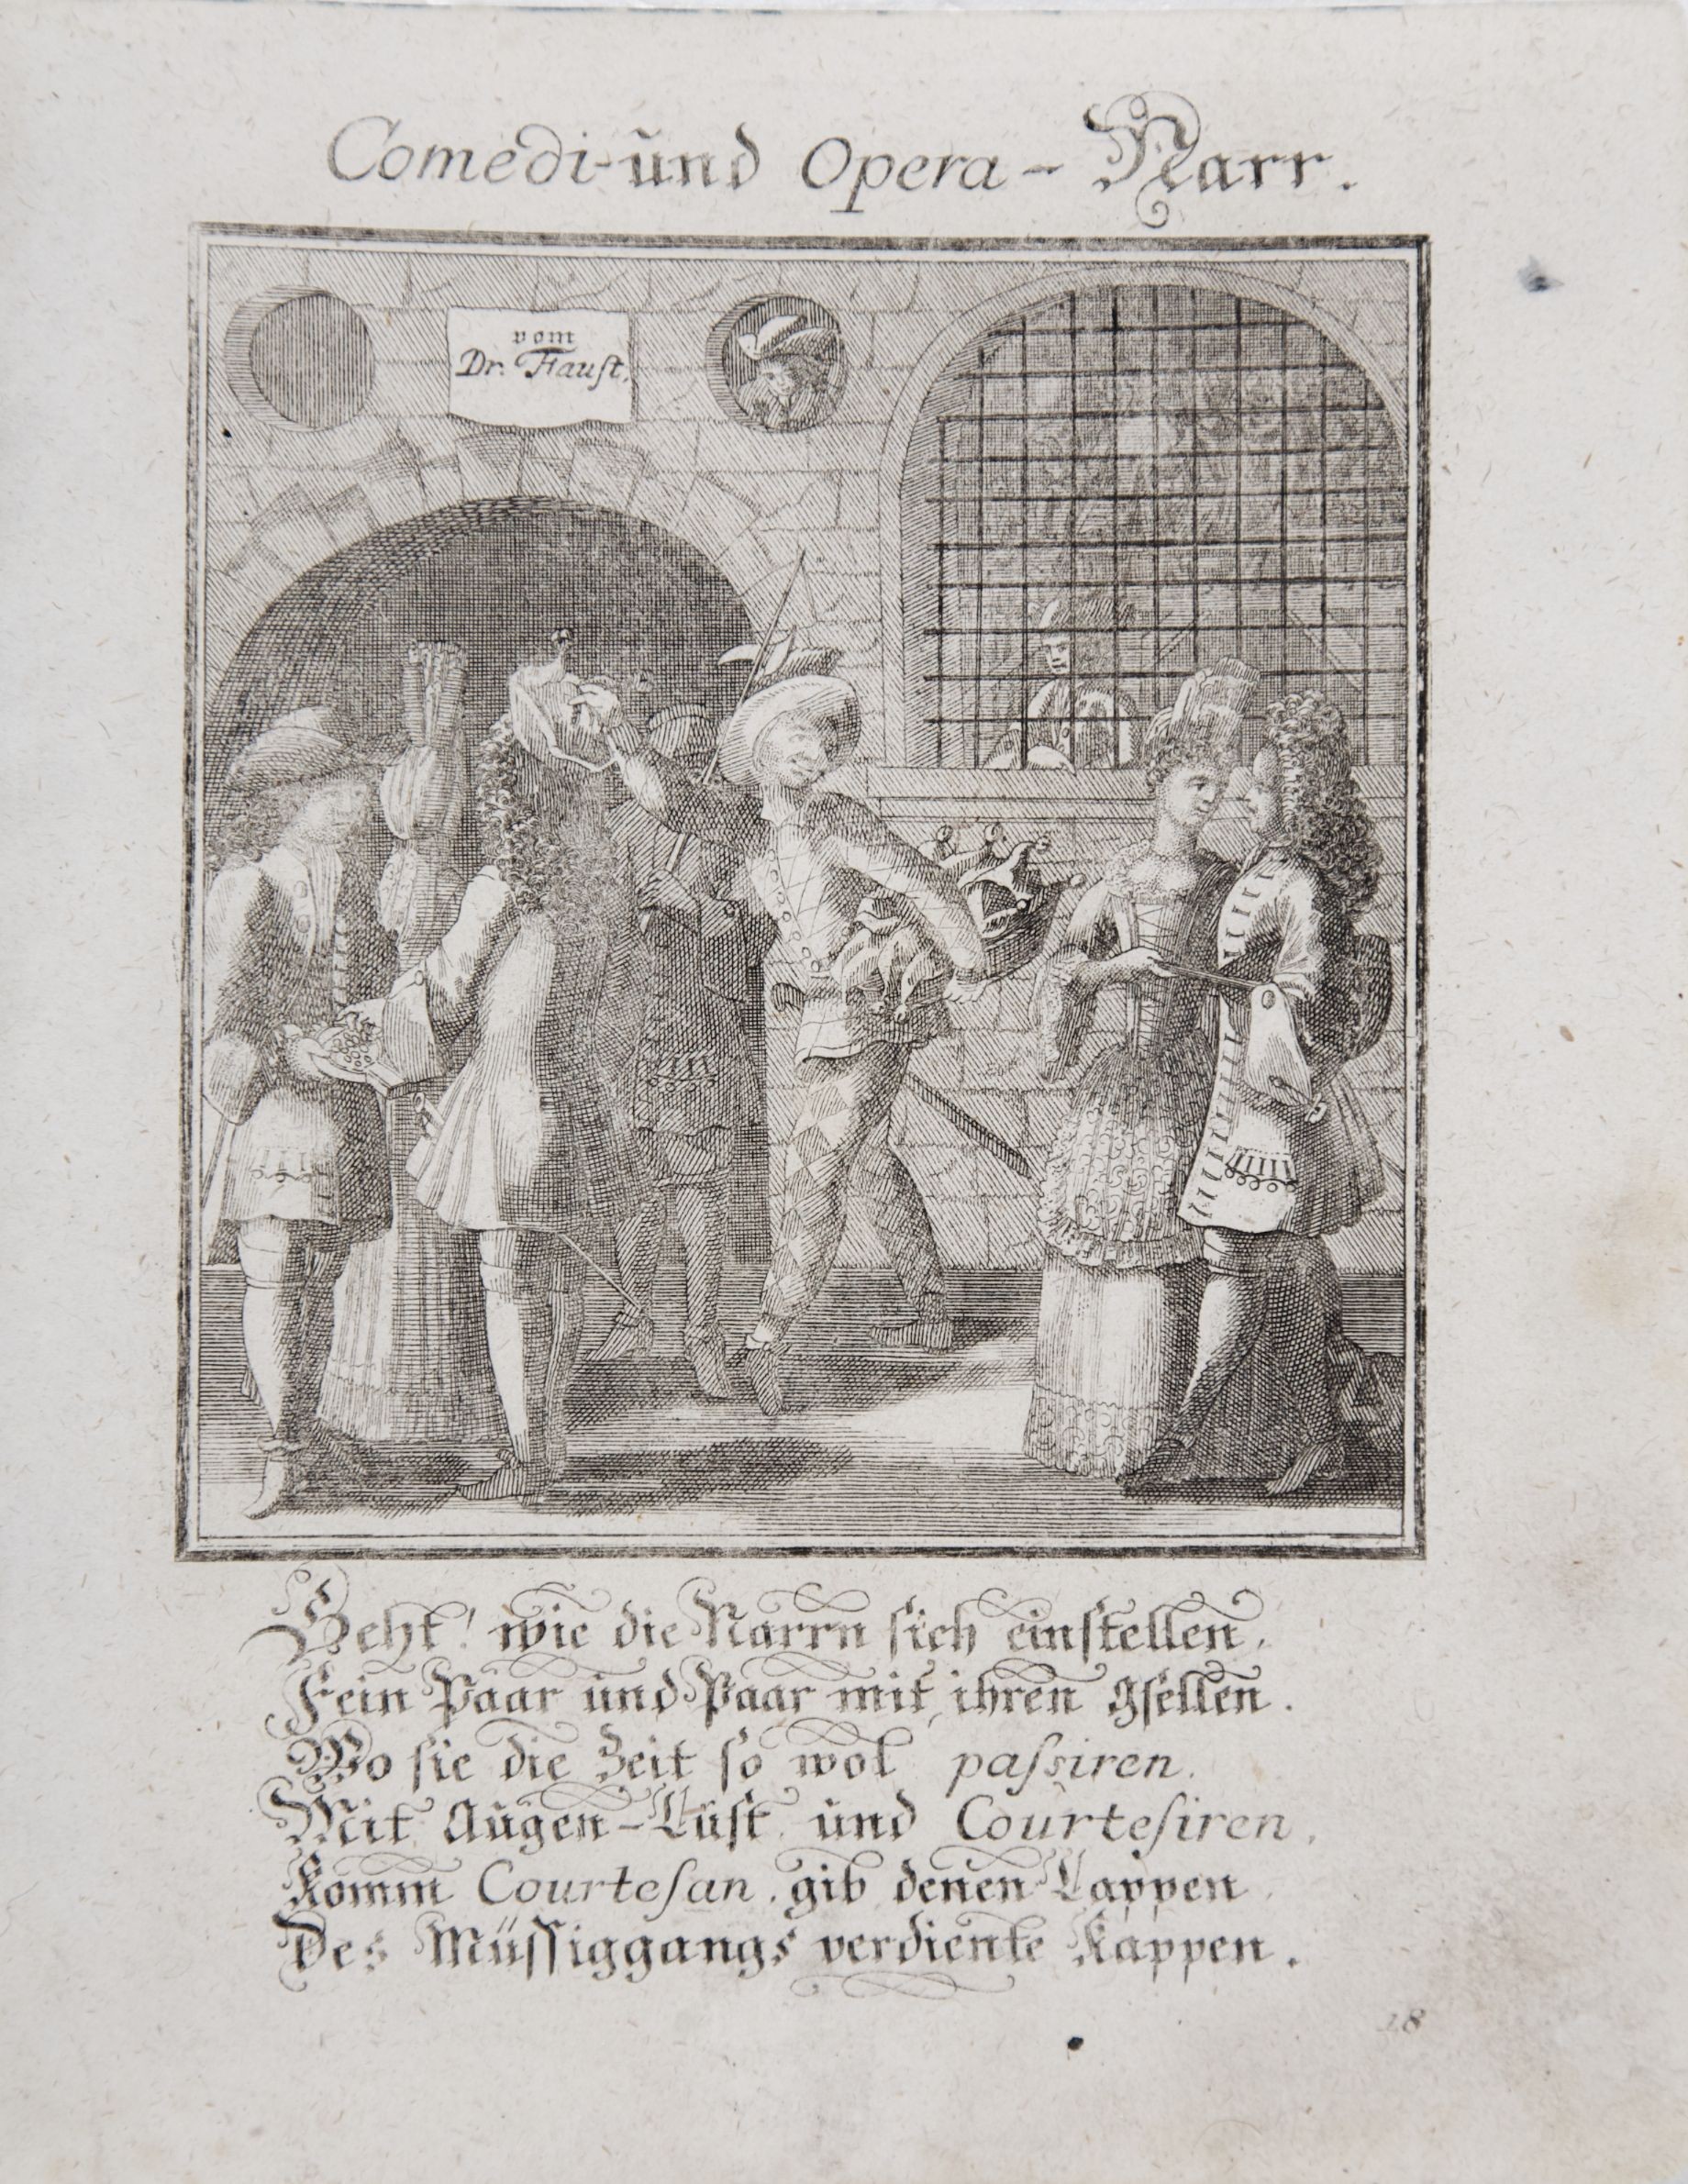 Comedi-und Opera-Narr.
vom
Dr. Fauſt.
Seht! wie die Narrn ſich einſtellen,
Fein Paar und Paar mit ihren Gſellen.
Wo ſie die Zeit ſo wol paſsiren.
Mit Augen-Luſt und Courteſiren,
Komm Courteſan, gib denen Lappen
Des Müſſiggangs verdiente Kappen.
18